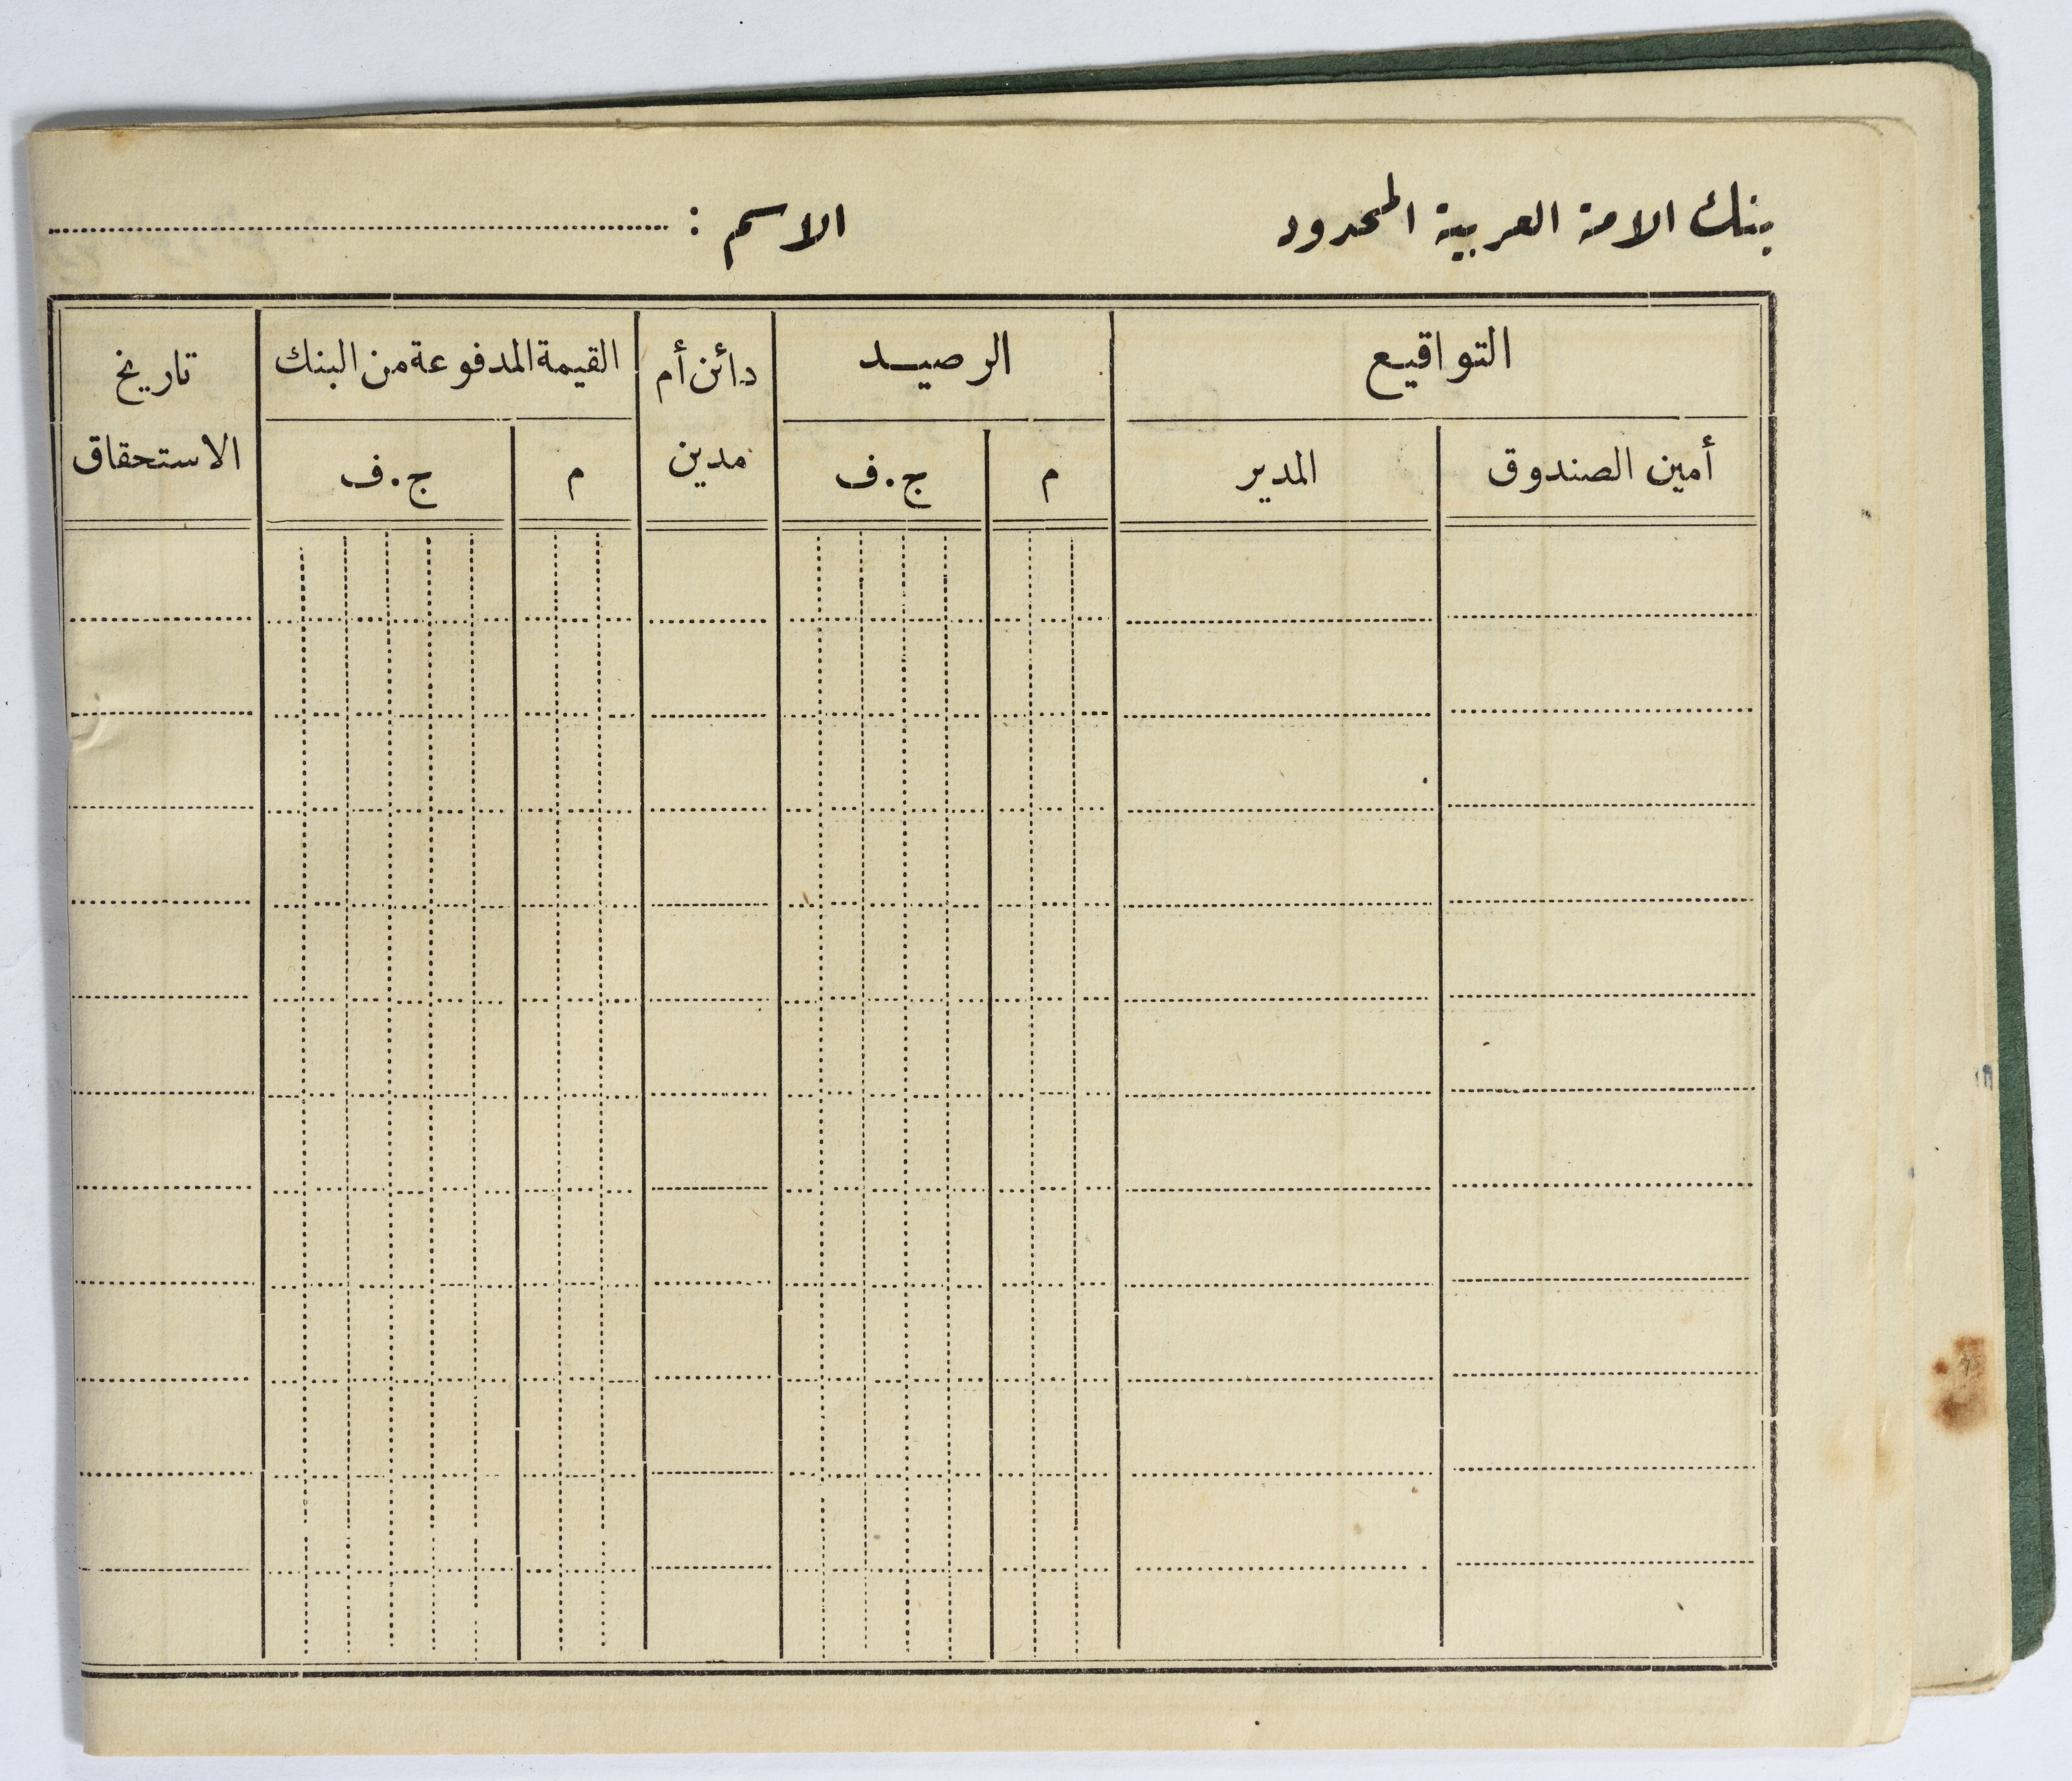 بنك الامة العربية المحدود الاسم :
التواقيع الرصيد دائن أم القيمة المدفوعة من البنك تاريخ
أمين الصندوق المدير م ج.ف مدين م ج.ف الاستحقاق